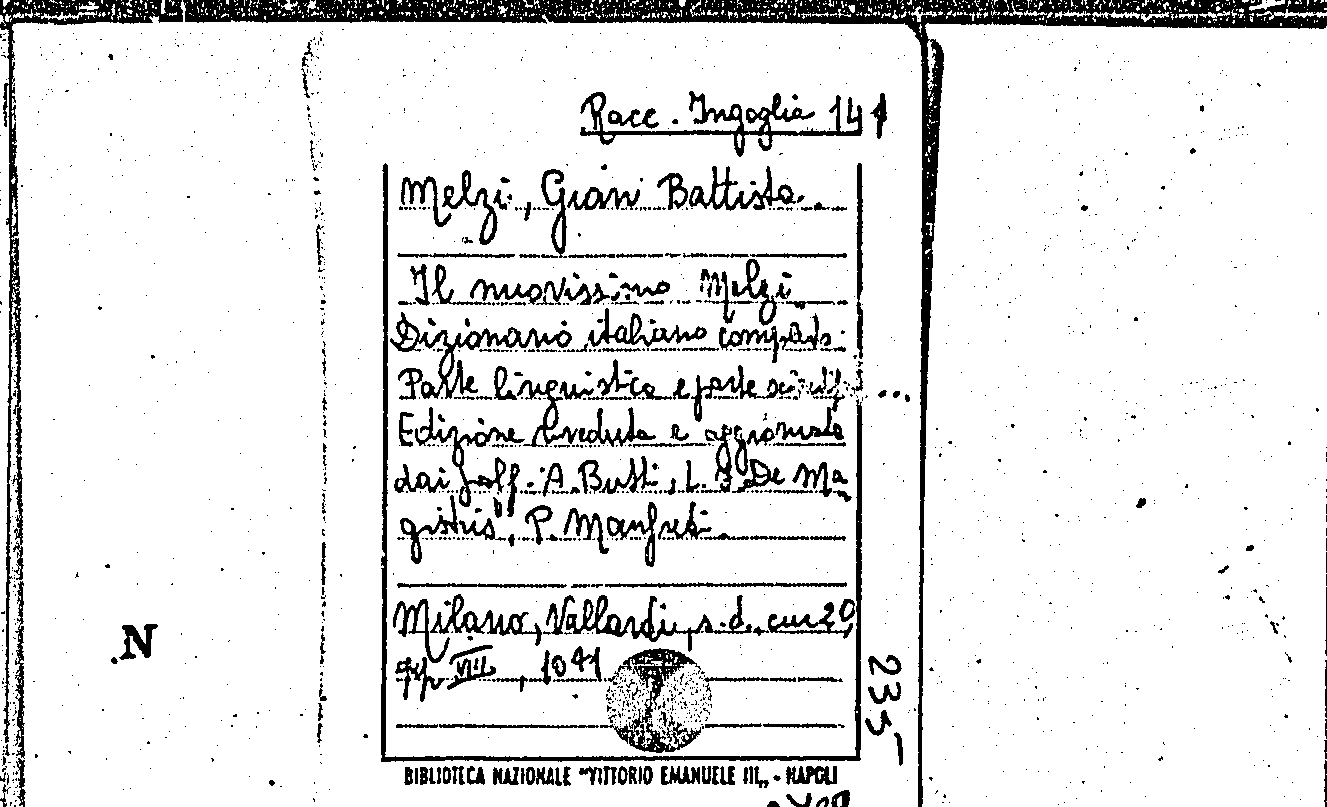 Racc. Ingoglia 141
Melzi, Gian Battista.
Il nuovissimo Melzi.
Dizionario italiano completo.
Parte linguistica e parte scientif...
Edizione riveduta e aggiornata
dai proff. A. Butti, L. F. De Ma
gistris, P. Manfredi.
Milano, Vallardi, s.d., cm 20,
pp VIII, 1041
.N
235
BIBLIOTECA NAZIONALE "VITTORIO EMANUELE III„ - NAPOLI